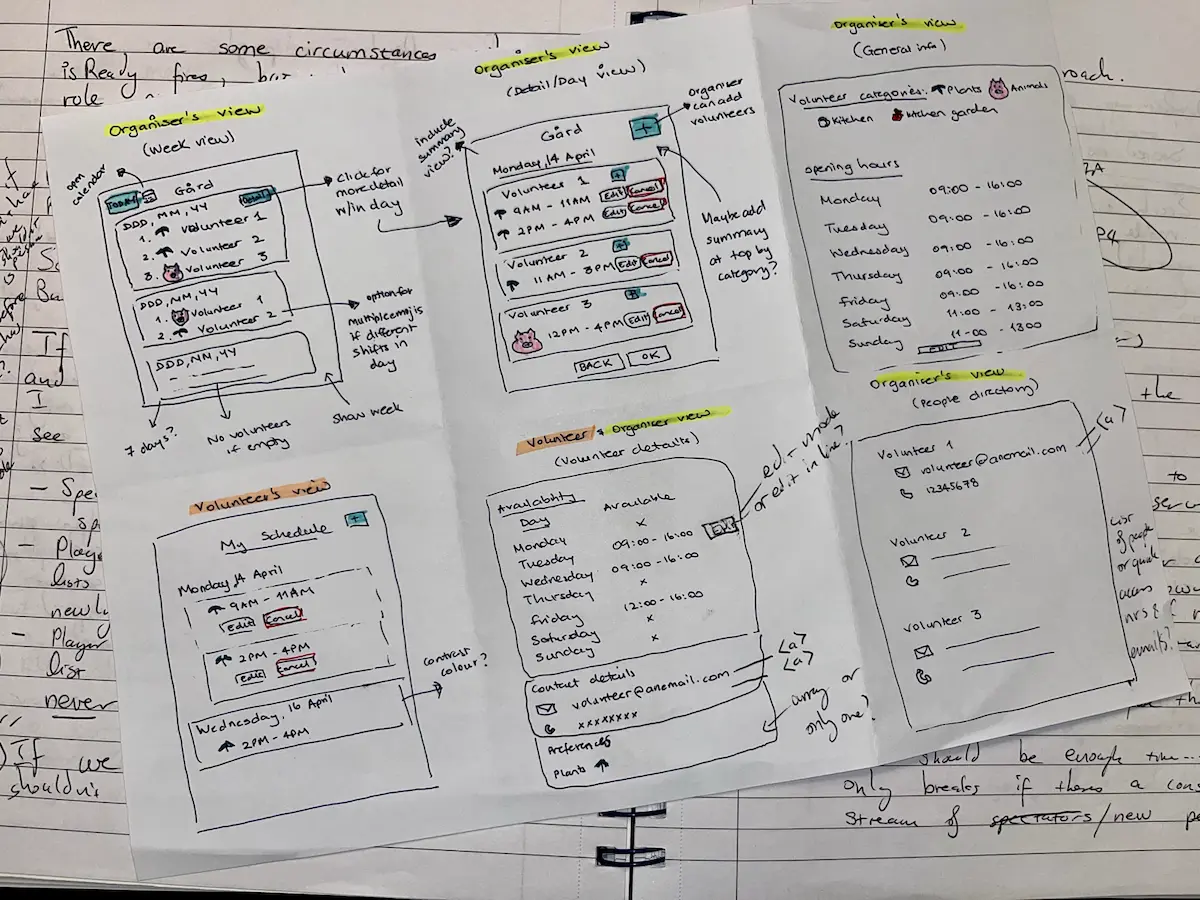 There are some circumstances
is Ready fires,
role
Organiser's view
(Week view)
open calendar
TODAY
Gård
Detail
DDD, MM, YY
1. Volunteer 1
2. Volunteer 2
3. Volunteer 3
DDD, MM, YY
1. Volunteer 1
2. Volunteer 2
DDD, MM, YY
7 days?
No volunteers
if empty
show week
Click for
more detail
w/in day
option for
multiple emoj
is if different
shifts in
day
Organiser's view
(Detail/Day view)
include
summary
view?
Gård
+
organiser
can add
volunteers
Monday, 14 April
Volunteer 1
+
9AM - 11AM Edit Cancel
2PM - 4PM Edit Cancel
Volunteer 2
+
11AM - 3PM Edit Cancel
Volunteer 3
+
12PM - 4PM Edit Cancel
BACK OK
Maybe add
summary
at top by
category?
Organiser's view
(General info)
Volunteer categories: Plants Animals
Kitchen Kitchen garden
opening hours
Monday 09:00 - 16:00
Tuesday 09:00 - 16:00
Wednesday 09:00 - 16:00
Thursday 09:00 - 16:00
Friday 09:00 - 16:00
Saturday 11:00 - 13:00
Sunday 11-00 - 1300
EDIT
Volunteer's view
My Schedule +
Monday, 14 April
9AM - 11AM
edit Cancel
2PM - 4PM
edit Cancel
Wednesday, 16 April
2PM - 4PM
contrast
colour?
Volunteer + Organiser view
(Volunteer details)
Availability
Day Available
Monday x
Tuesday 09:00 - 16:00
Wednesday 09:00 - 16:00
Thursday x
Friday 12:00 - 16:00
Saturday x
Sunday x
Edit
edit mode
or edit in line?
Contact details
volunteer@anemail.com
xxxxxxxx
<a>
<a>
Preferences
Plants
array or
only one?
Organiser's view
(People directory)
Volunteer 1
volunteer@anemail.com
12345678
<a>
Volunteer 2
Volunteer 3
List
of people
or quick
access
nrs &
emails?
roach.
If
and
I
see
- Spe
- Playe
lists
newly
- Player
list
never
If we
shouldn't
the
to
should be enough time...
only breaks if theres a cons
Stream of spectators/new pe